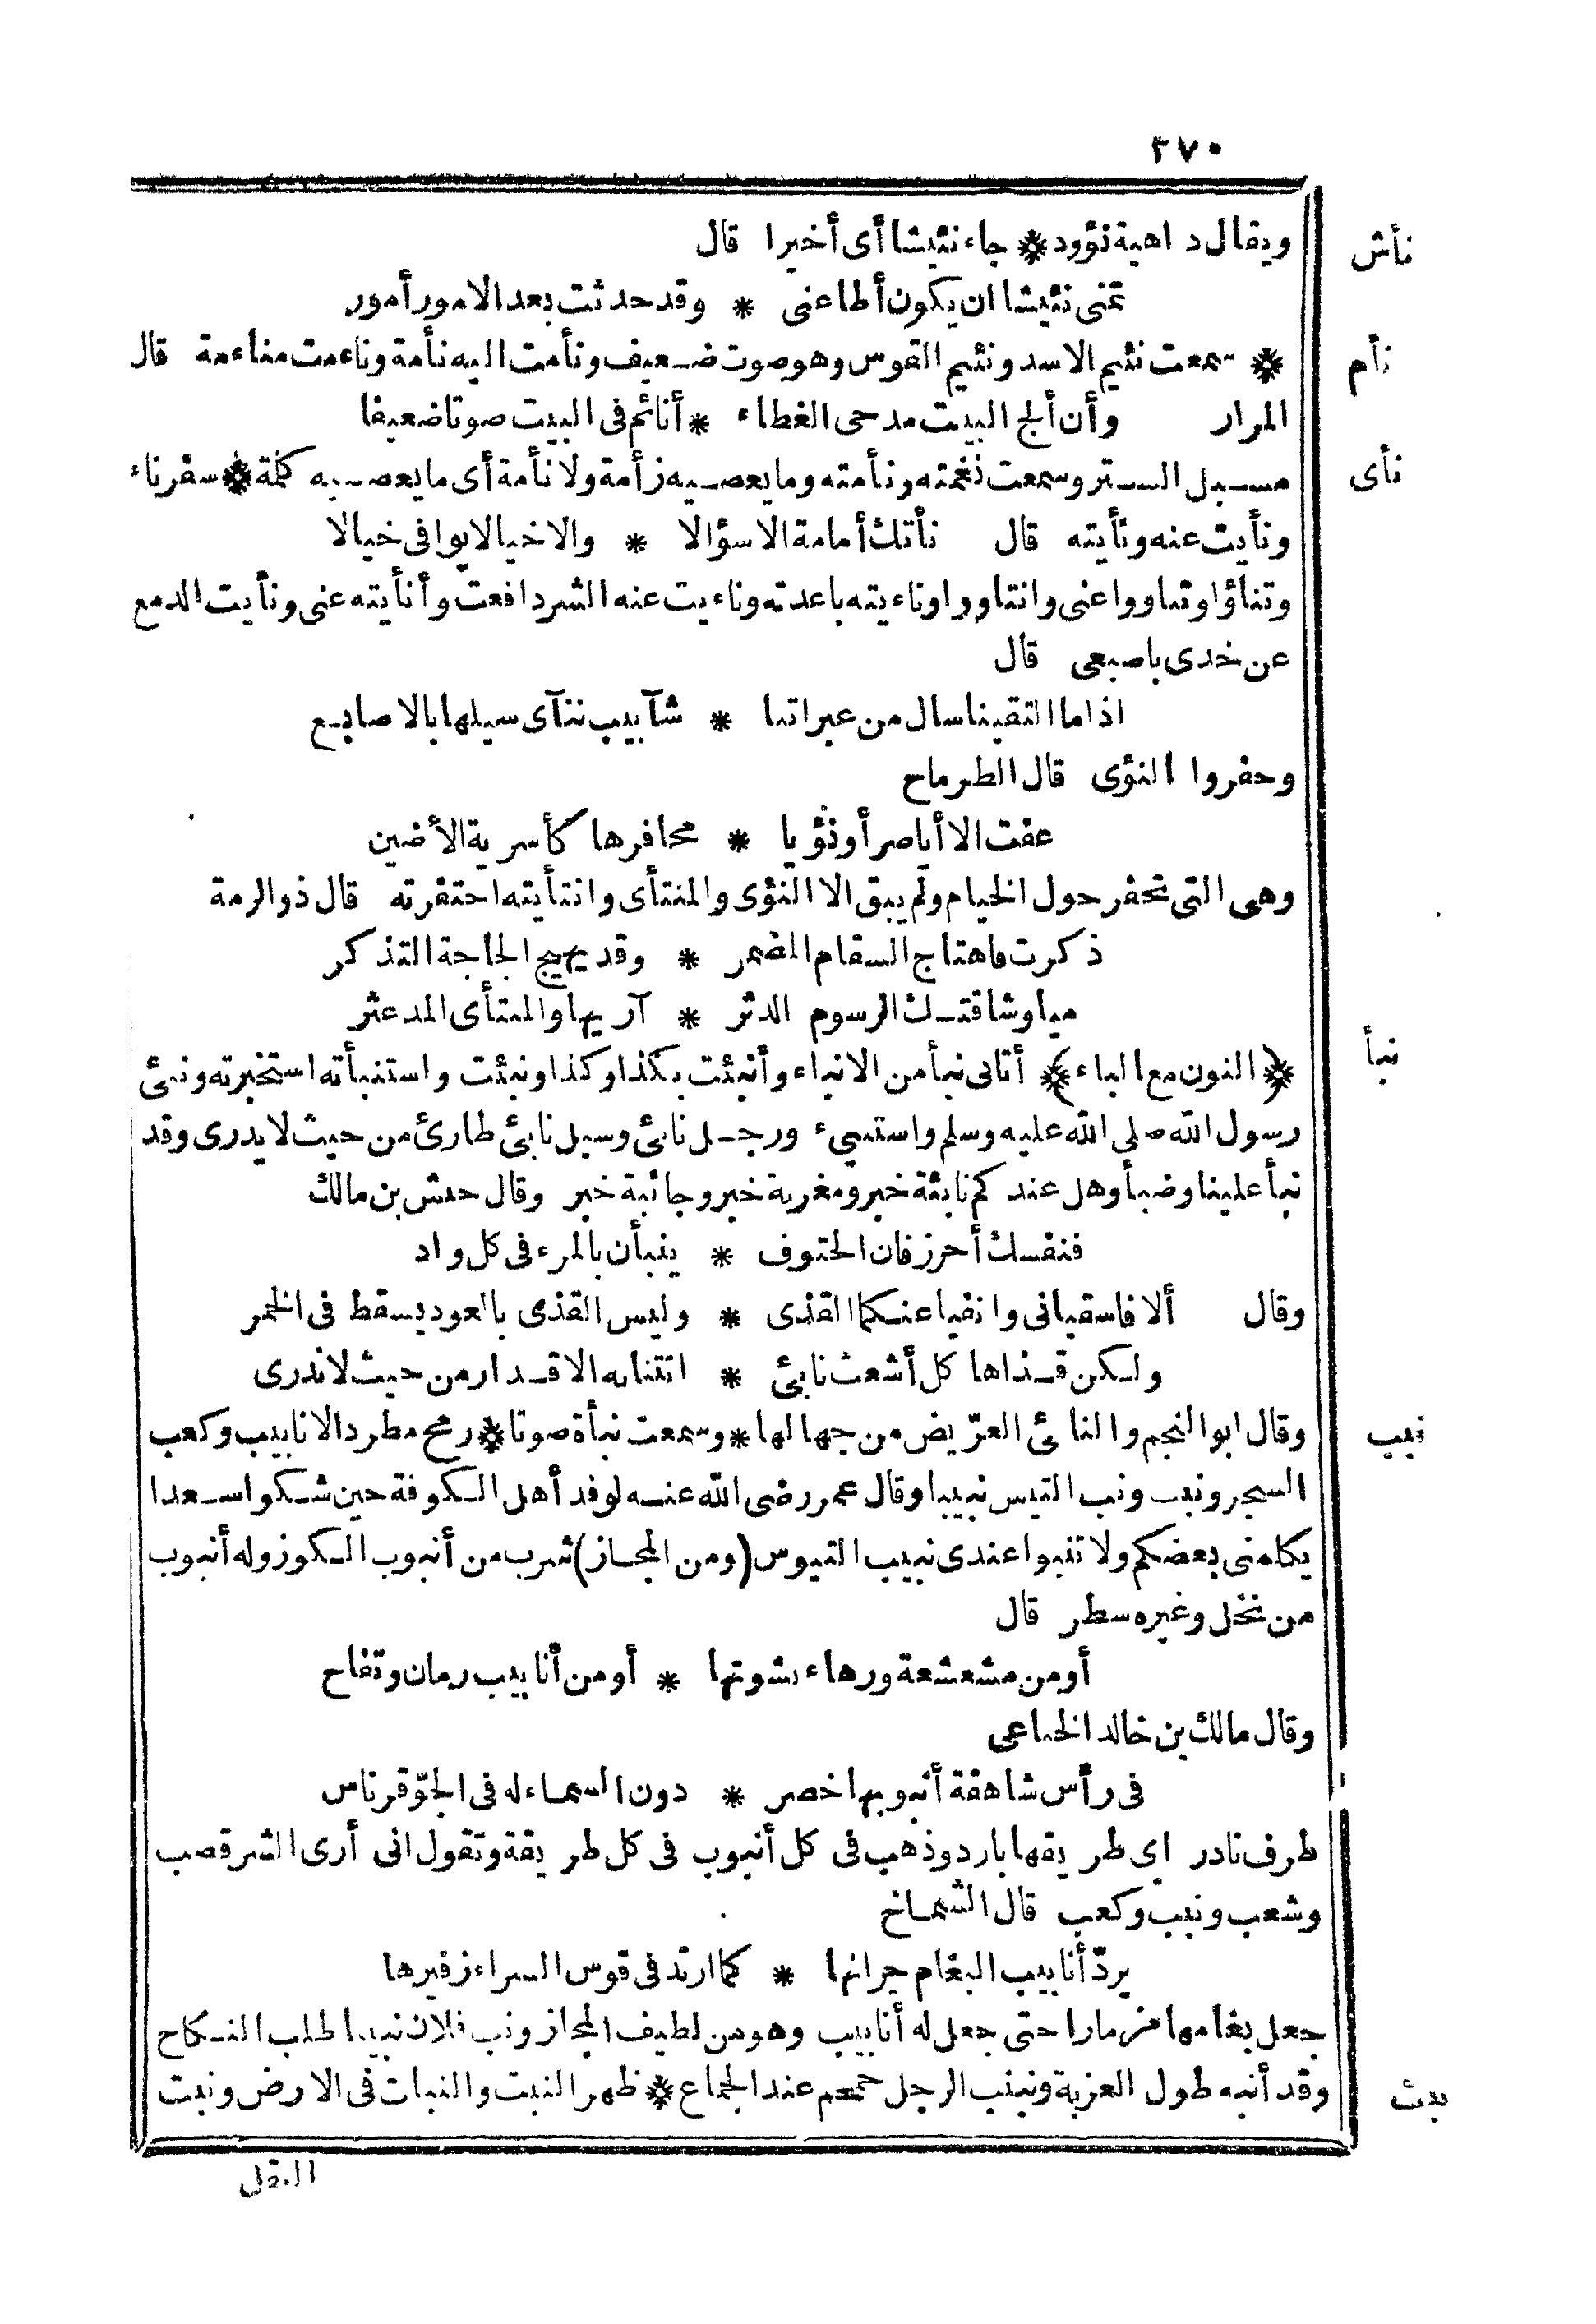 ٣٧٠
نأش
ويقال داهية نؤود ❊ جاء نئيشا أى أخيرا قال
تمنى نئيشا ان يكون أطاعنى * وقد حدثت بعد الامور أمور
نأم
❊ سمعت نئيم الاسد ونئيم القوس وهو صوت ضعيف ونأمت اليه نأمة وناءمت مناءمة قال
المرار وأن ألج البيت مدحى الغطاء * أنائم فى البيت صوتا ضعيفا
نأى
مسبل الستر وسمعت نغمته ونأمته وما يعصيه زأمة ولا نأمة أى ما يعصيه كلمة ❊ سفر ناء
ونأيت عنه ونأيته قال نأتك أمامة الا سؤالا * والا خيالا يوافى خيالا
وتناؤا وتناووا عنى وانتاووا وناءيته باعدته وناءيت عنه الشر دافعت وأنأيته عنى ونأيت الدمع
عن خدى باصبعى قال
اذا ما التقينا سال من عبراتنا * شآبيب ننآى سيلها بالاصابع
وحفروا النؤى قال الطرماح
عفت الا أياصر أو نؤيا * محافرها كأسرية الأضين
وهى التى تحفر حول الخيام ولم يبق الا النؤى والمنتأى وانتأيته احتفرته قال ذو الرمة
ذكرت فاهتاج السقام المضمر * وقد يهيج الحاجة التذكر
ميا وشاقتك الرسوم الدثر * آريها والمنتأى المدعثر
نبأ
﴿النون مع الباء﴾ أتانى نبأ من الانباء وأنبئت بكذا وكذا ونبئت واستنبأته استخبرته ونبئ
رسول الله صلى الله عليه وسلم واستنبىء ورجل نابئ وسيل نابئ طارئ من حيث لا يدرى وقد
نبأ علينا وضبأ وهل عندكم نابئة خبر ومغربة خبر وجائبة خبر وقال حنش بن مالك
فنفسك أحرز فان الحتوف * ينبأن بالمرء فى كل واد
وقال ألا فاسقيانى وانفيا عنكما القذى * وليس القذى بالعود يسقط فى الخمر
ولكن قذاها كل أشعث نابئ * اتتنا به الاقدار من حيث لا ندرى
نبب
وقال ابو النجم والنائئ العرّيض من جهالها * وسمعت نبأة صوتا ❊ رمح مطرد الانابيب وكعب
الشجر ونبب ونب التيس نبيبا وقال عمر رضى الله عنه لوفد أهل الكوفة حين شكوا سعدا
يكلمنى بعضكم ولا تنبوا عندى نبيب التيوس (ومن المجاز) شرب من أنبوب الكوز وله أنبوب
من نخل وغيره سطر قال
أو من مشعشعة ورهاء نشوتها * أو من أنابيب رمان وتفاح
وقال مالك بن خالد الخناعى
فى رأس شاهقة أنبوبها خصر * دون السماء له فى الجوّ قرناس
طرف نادر اى طريقها بارد وذهب فى كل أنبوب فى كل طريقة وتقول انى أرى الشر قصب
وشعب ونبب وكعب قال الشماخ
يردّ أنابيب البغام جرانها * كما ارتد فى قوس السراء زفيرها
جعل بغامها مزمارا حتى جعل له أنابيب وهو من لطيف المجاز ونب فلان نبيبا طلب النكاح
نبت
وقد أنبه طول العزبة ونبنب الرجل حمحم عند الجماع ❊ ظهر النبت والنبات فى الارض ونبت
البقل